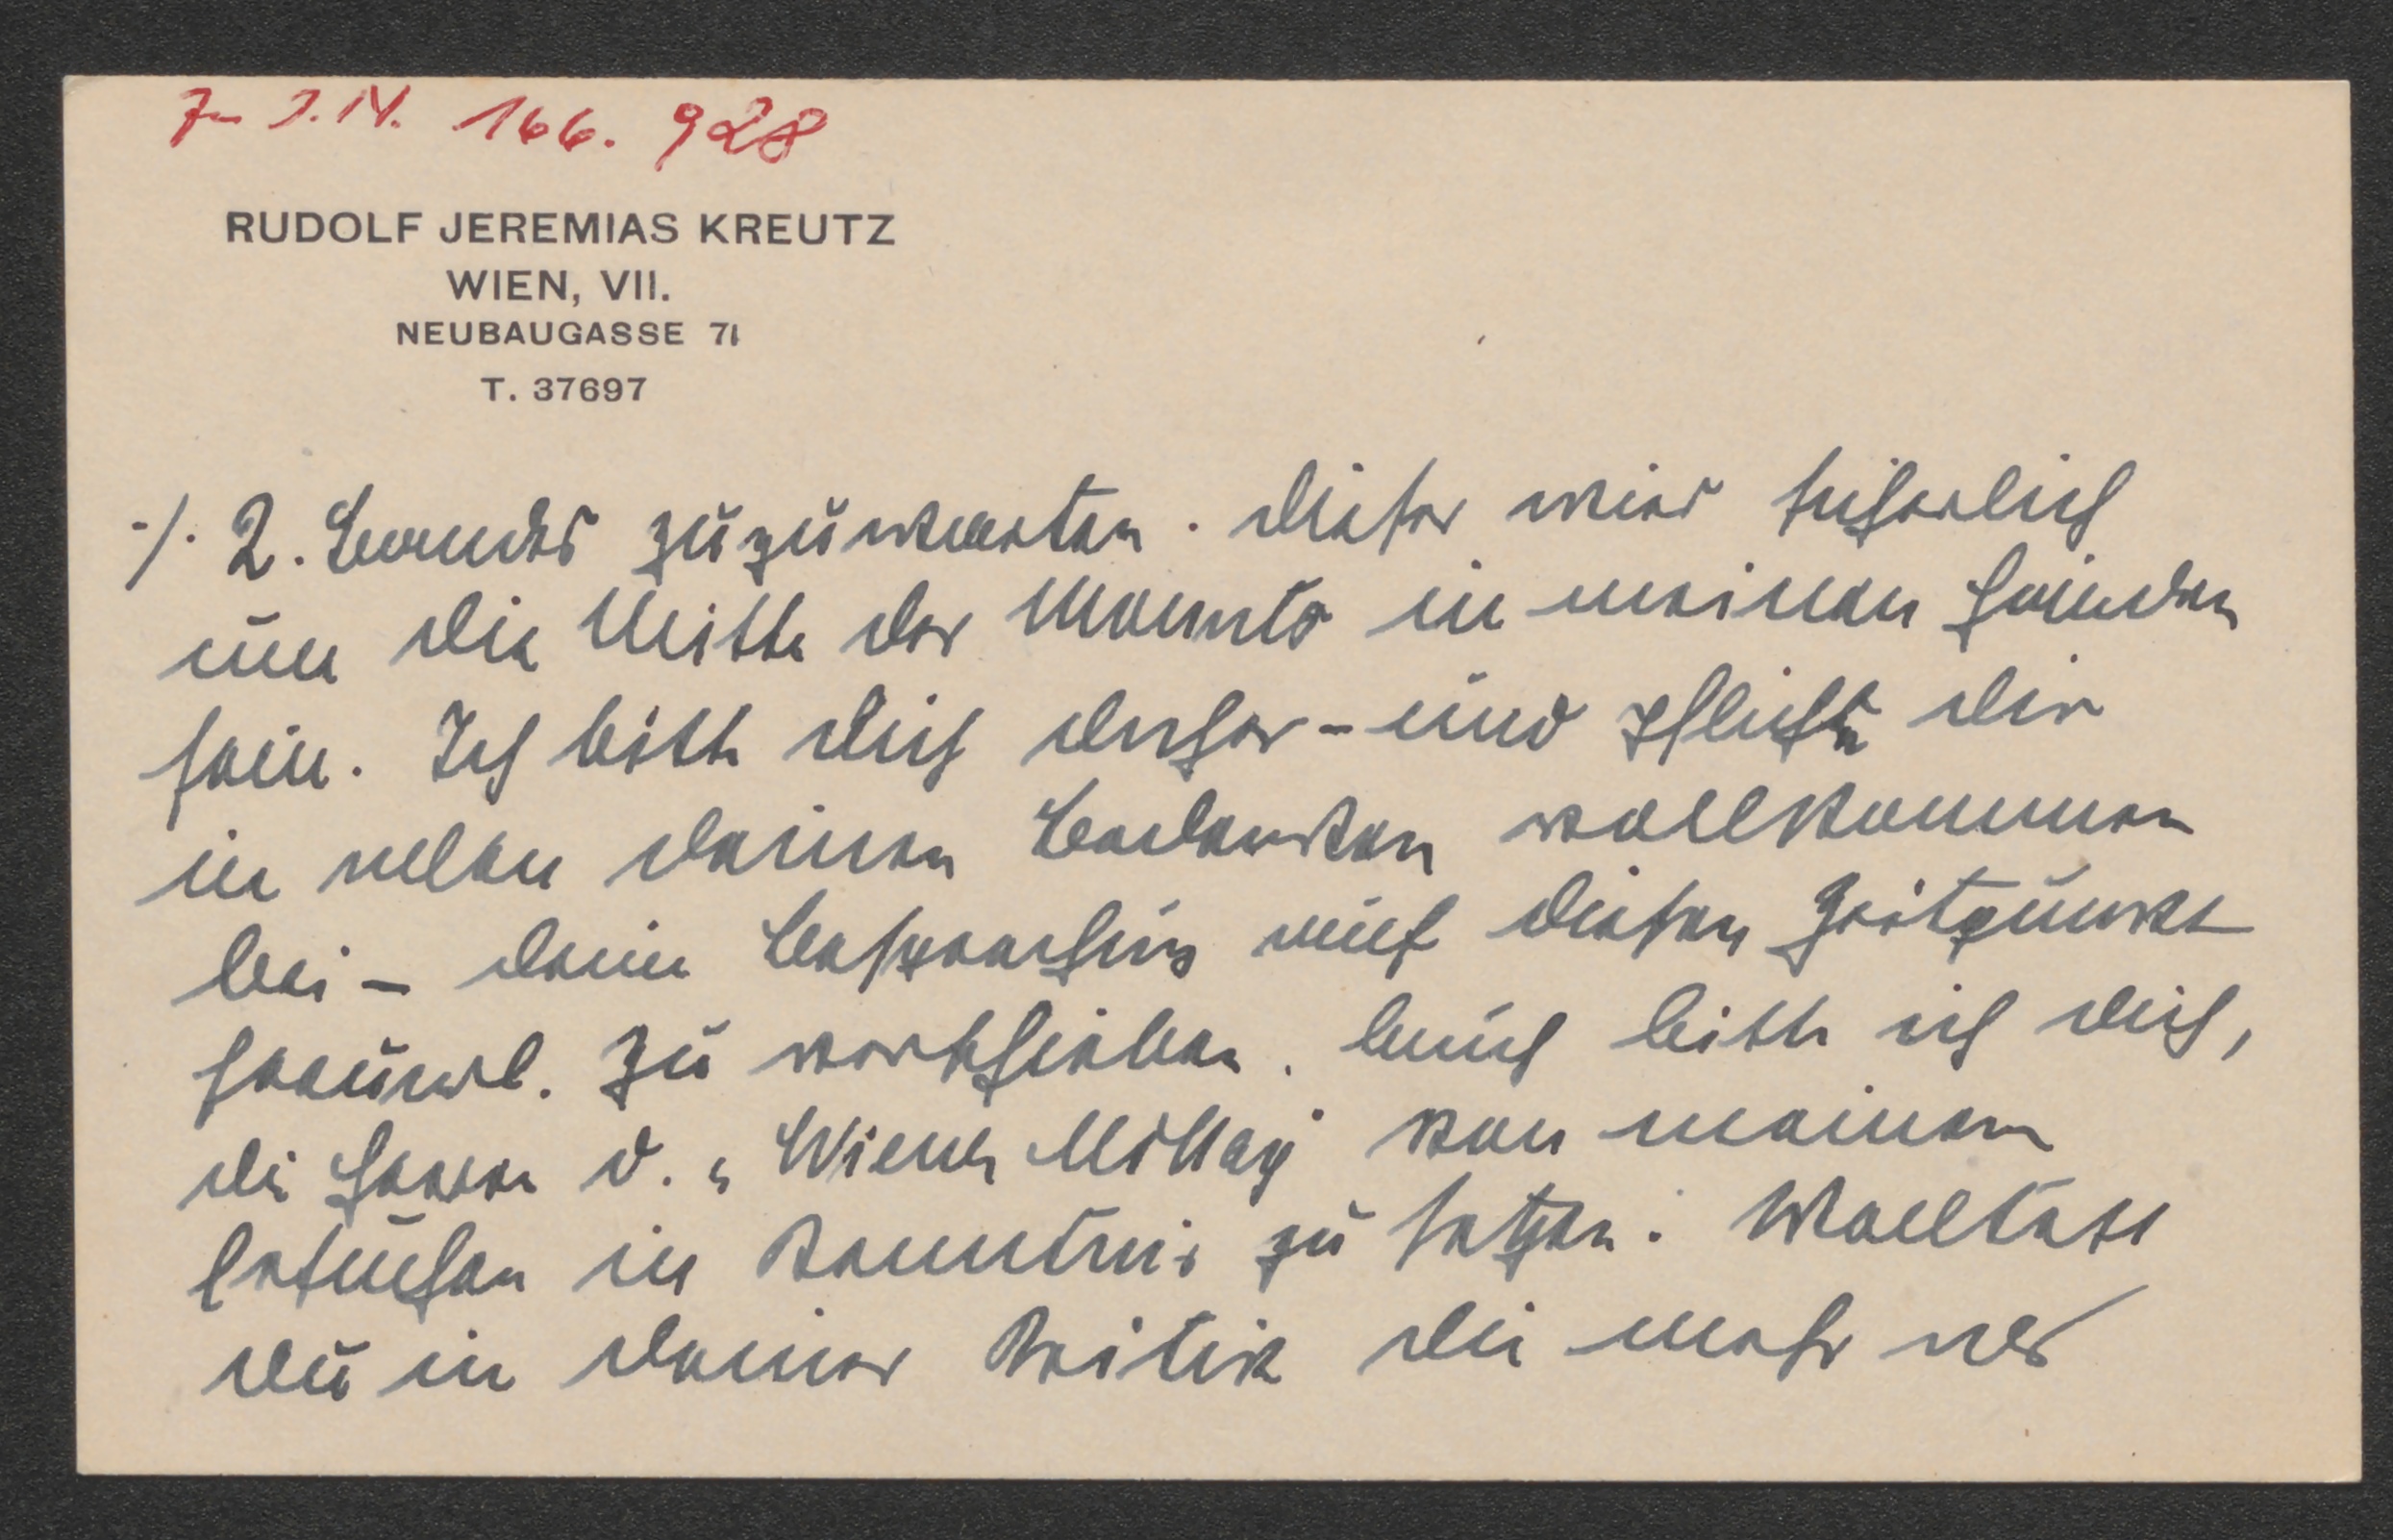 Z. J.N. 166.928
RUDOLF JEREMIAS KREUTZ
WIEN, VII.
NEUBAUGASSE 71
T. 37697
./. 2. Bandes zuzuwarten. Dieser wird sicherlich
um die Mitte des Monats in meinen Händen
sein. Ich bitte dich daher - und pflichte dir
in allen deinen Gedanken vollkommen
bei - deine Besprechung auf diesen Zeitpunkt
freundl. zu verschieben. Auch bitte ich dich,
die Herren v. „Wiener Mittag“ von meinem
Ersuchen in Kenntnis zu setzen. Wolltest
du in deiner Kritik die mehr als